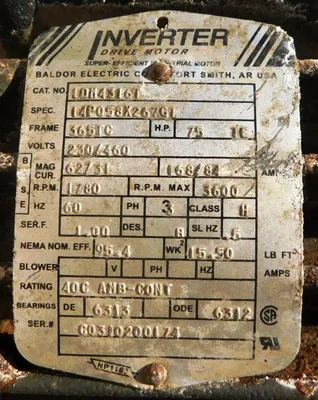 INVERTER
DRIVE MOTOR
SUPER-EFFICIENT INDUSTRIAL MOTOR
BALDOR ELECTRIC CO. FORT SMITH, AR USA
CAT. NO. IDM4316T
SPEC. 14P058X267G1
FRAME 365TC H.P. 75 TE
VOLTS 230/460
MAG CUR. 62/31 168/84 AMPS
BASE
R.P.M. 1780 R.P.M. MAX 3600
HZ 60 PH 3 CLASS H
SER.F. 1.00 DES. B SL HZ .5
NEMA NOM. EFF. 95.4 WK² 15.50 LB FT²
BLOWER V PH HZ AMPS
RATING 40C AMB-CONT
BEARINGS DE 6313 ODE 6312
SER.# C0310200174